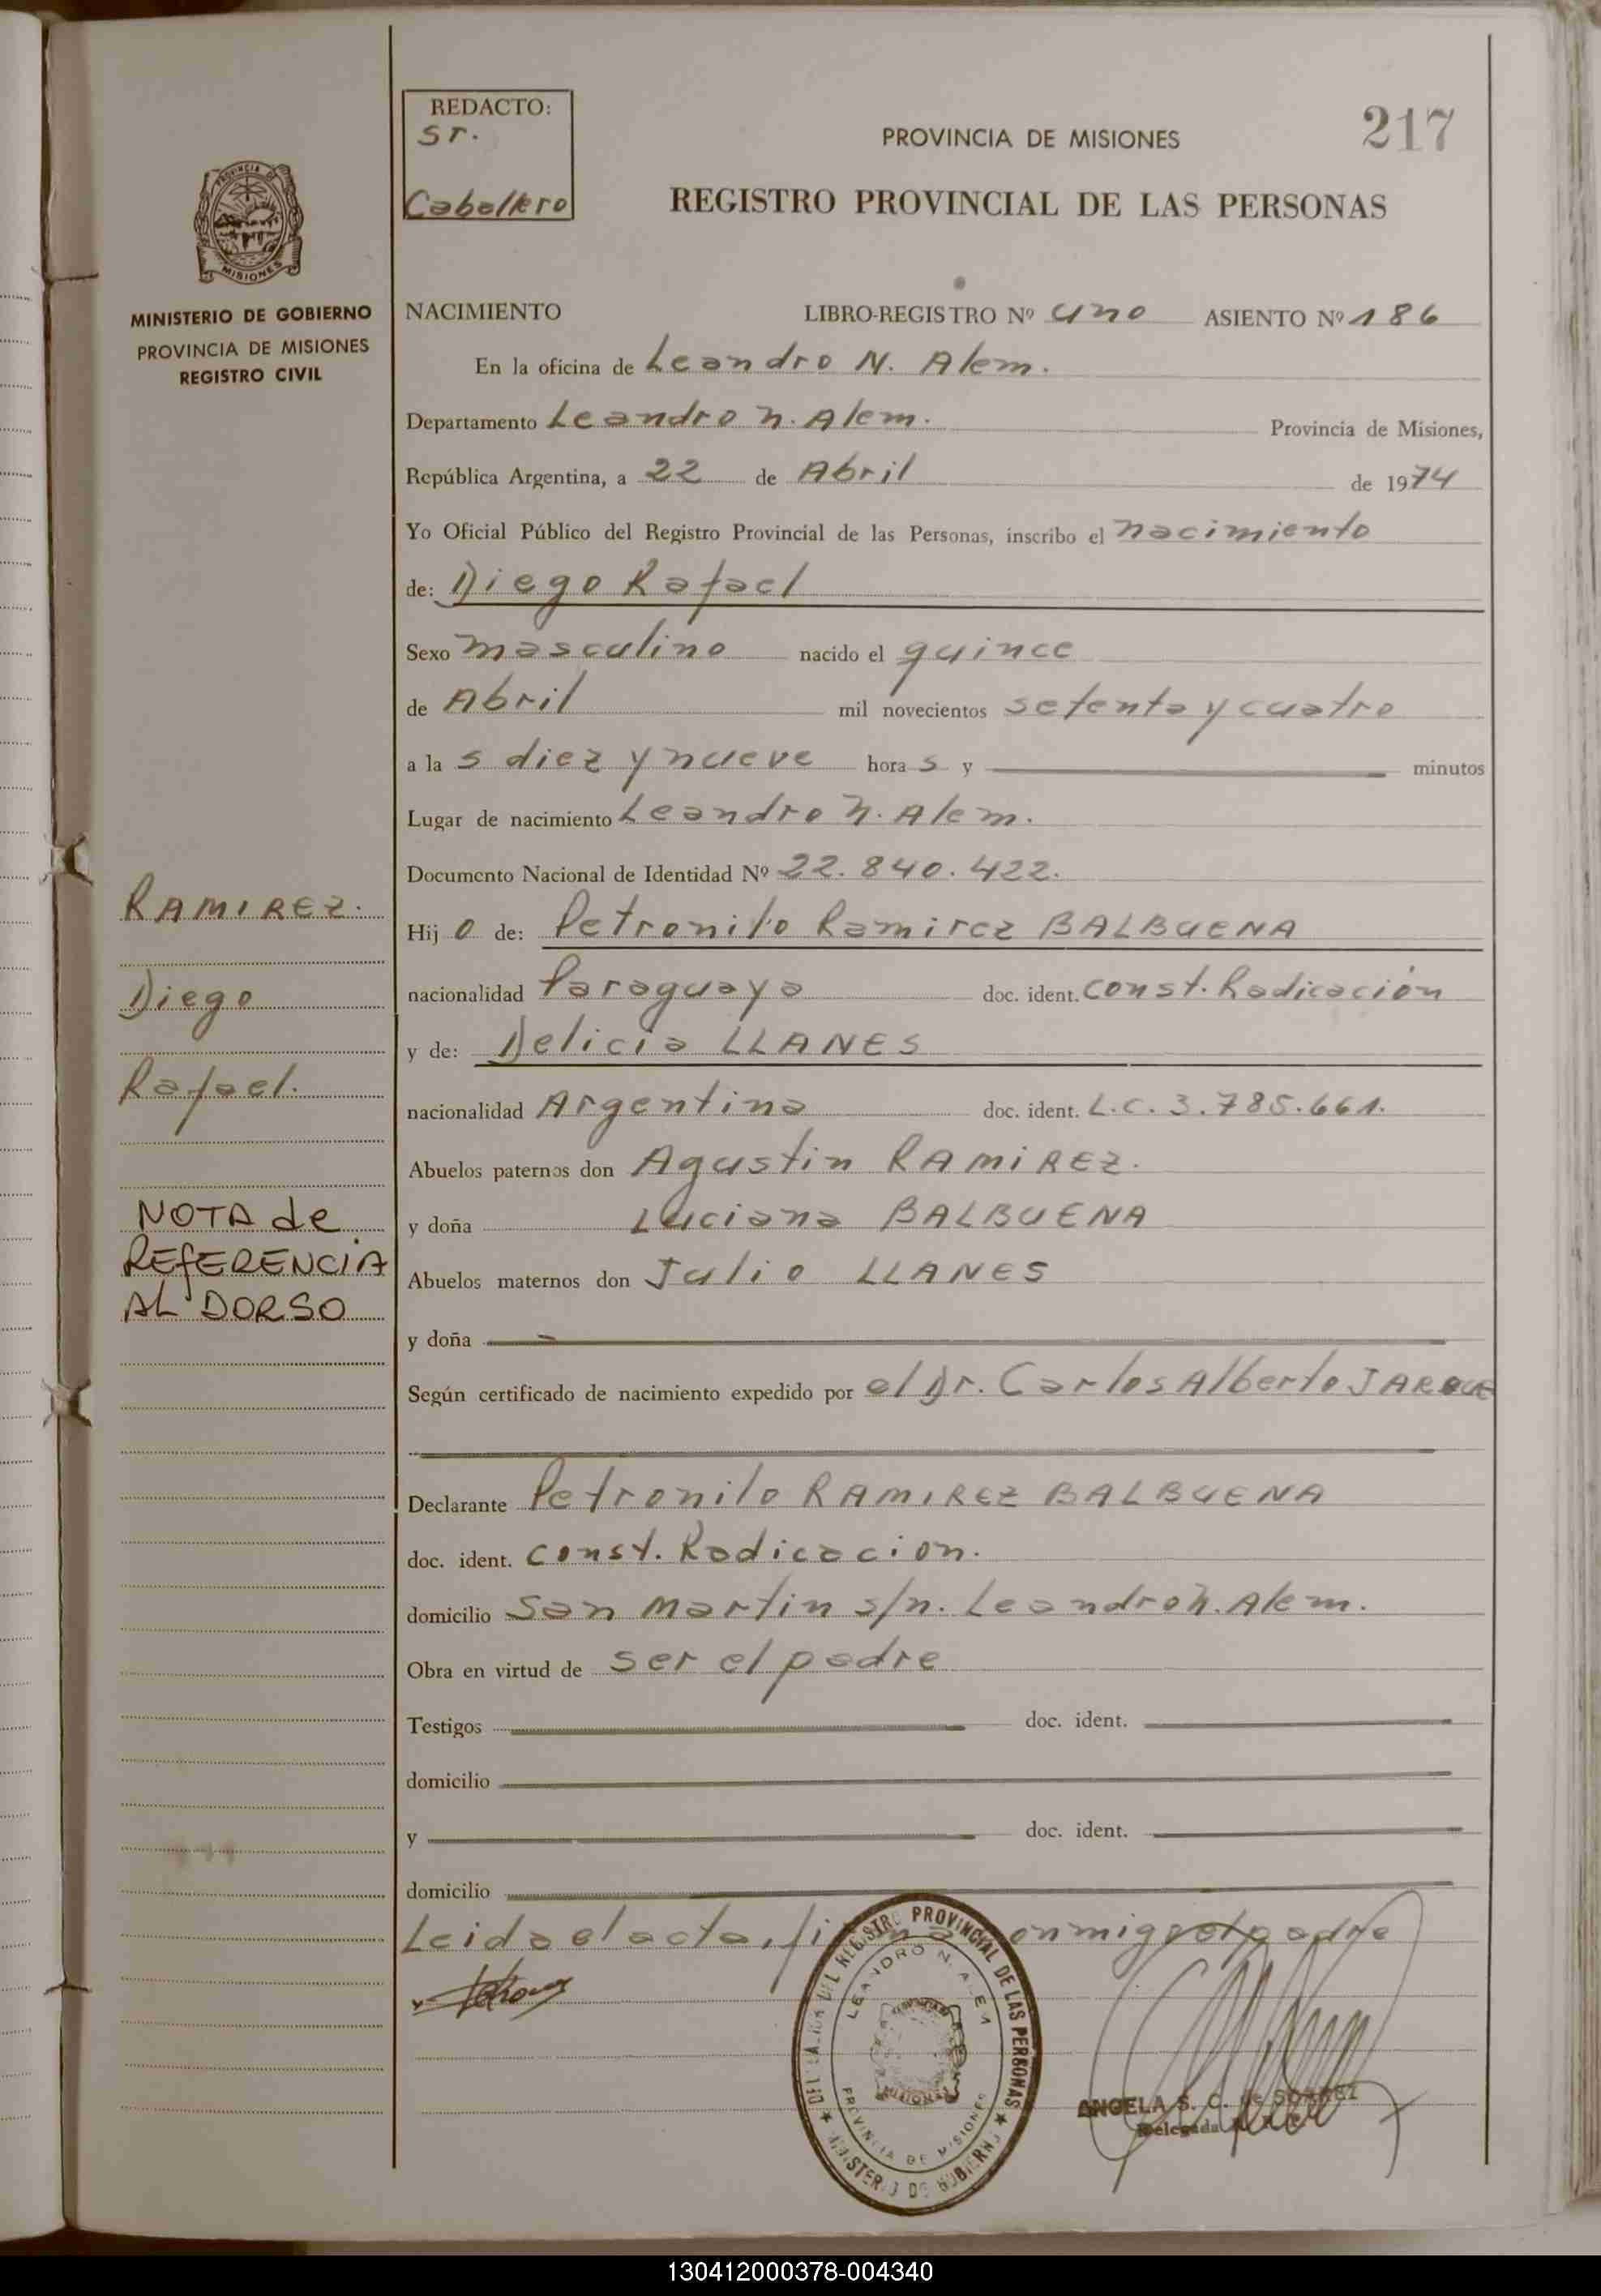 REDACTO:
Sr.
Caballero
PROVINCIA DE MISIONES
217
REGISTRO PROVINCIAL DE LAS PERSONAS
PROVINCIA DE
MISIONES
MINISTERIO DE GOBIERNO
PROVINCIA DE MISIONES
REGISTRO CIVIL
NACIMIENTO LIBRO-REGISTRO Nº uno ASIENTO Nº 186
En la oficina de Leandro N. Alem.
Departamento Leandro N. Alem. Provincia de Misiones,
República Argentina, a 22 de Abril de 1974
Yo Oficial Público del Registro Provincial de las Personas, inscribo el nacimiento
de: Diego Rafael
Sexo masculino nacido el quince
de Abril mil novecientos setenta y cuatro
a la s diez y nueve hora s y minutos
Lugar de nacimiento Leandro N. Alem.
Documento Nacional de Identidad Nº 22.840.422.
Hij o de: Petronilo Ramirez BALBUENA
nacionalidad Paraguaya doc. ident. Const. Radicación
y de: Delicia LLANES
nacionalidad Argentina doc. ident. L.C. 3.785.661.
Abuelos paternos don Agustin RAMIREZ.
y doña Luciana BALBUENA
Abuelos maternos don Julio LLANES
y doña
Según certificado de nacimiento expedido por el Dr. Carlos Alberto JARQUE
Declarante Petronilo RAMIREZ BALBUENA
doc. ident. Const. Radicacion.
domicilio San Martin s/n. Leandro N. Alem.
Obra en virtud de ser el padre
Testigos doc. ident.
domicilio
y doc. ident.
domicilio
Leida el acta, firma conmigo el padre
RAMIREZ.
Diego
Rafael.
NOTA de
REFERENCIA
AL DORSO
DEL REGISTRO PROVINCIAL DE LAS PERSONAS
MINISTERIO DE GOBIERNO
LEANDRO N. ALEM
PROVINCIA DE MISIONES
ANGELA S. C. de
Delegada
130412000378-004340